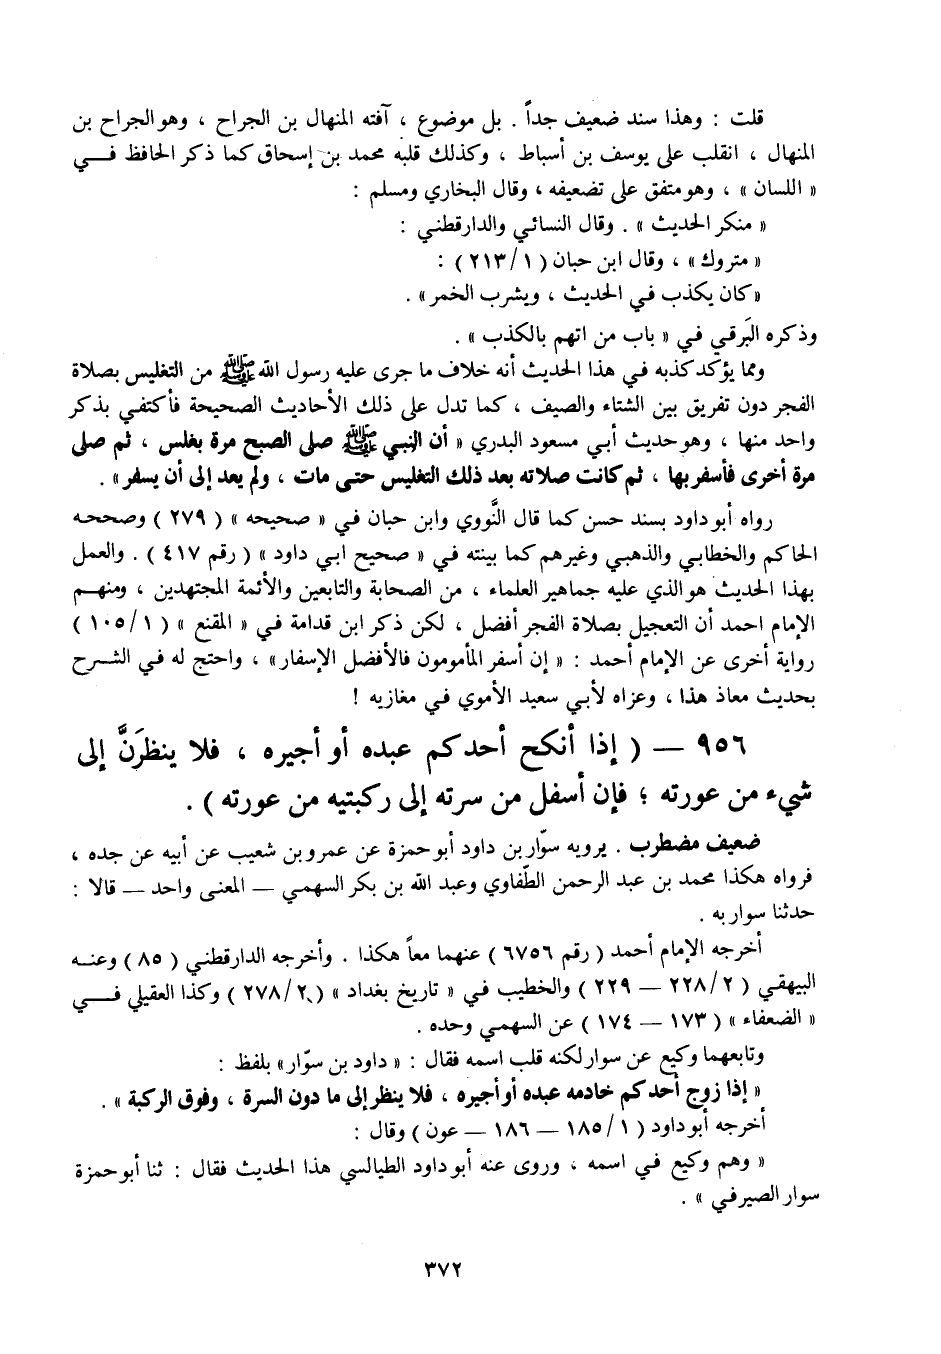 قلت : وهذا سند ضعيف جداً . بل موضوع ، آفته المنهال بن الجراح ، وهو الجراح بن
المنهال ، انقلب على يوسف بن أسباط ، وكذلك قلبه محمد بن إسحاق كما ذكر الحافظ فــي
« اللسان » ، وهو متفق على تضعيفه ، وقال البخاري ومسلم :
« منكر الحديث » . وقال النسائي والدارقطني :
« متروك » ، وقال ابن حبان ( ١/ ٢١٣ ) :
« كان يكذب في الحديث ، ويشرب الخمر » .
وذكره البَرقي في « باب من اتهم بالكذب » .
ومما يؤكد كذبه في هذا الحديث أنه خلاف ما جرى عليه رسول الله ﷺ من التغليس بصلاة
الفجر دون تفريق بين الشتاء والصيف ، كما تدل على ذلك الأحاديث الصحيحة فأكتفي بذكر
واحد منها ، وهو حديث أبي مسعود البدري « أن النبي ﷺ صلى الصبح مرة بغلس ، ثم صلى
مرة أخرى فأسفر بها ، ثم كانت صلاته بعد ذلك التغليس حتى مات ، ولم يعد إلى أن يسفر » .
رواه أبو داود بسند حسن كما قال النَّووي وابن حبان في « صحيحه » ( ٢٧٩ ) وصححه
الحاكم والخطابي والذهبي وغيرهم كما بينته في « صحيح ابي داود » ( رقم ٤١٧ ) . والعمل
بهذا الحديث هو الذي عليه جماهير العلماء ، من الصحابة والتابعين والأئمة المجتهدين ، ومنهـم
الإمام احمد أن التعجيل بصلاة الفجر أفضل ، لكن ذكر ابن قدامة في « المقنع » ( ١/ ١٠٥ )
رواية أخرى عن الإمام أحمد : « إن أسفر المأمومون فالأفضل الإسفار » ، واحتج له في الشـرح
بحديث معاذ هذا ، وعزاه لأبي سعيد الأموي في مغازيه !
٩٥٦ — ( إذا أنكح أحدكم عبده أو أجيره ، فلا ينظرَنَّ إلى
شيء من عورته ؛ فإن أسفل من سرته إلى ركبتيه من عورته ) .
ضعيف مضطرب . يرويه سوّار بن داود أبو حمزة عن عمرو بن شعيب عن أبيه عن جده ،
فرواه هكذا محمد بن عبد الرحمن الطّفاوي وعبد الله بن بكر السهمي — المعنى واحد — قالا :
حدثنا سوار به .
أخرجه الإمام أحمد ( رقم ٦٧٥٦ ) عنهما معاً هكذا . وأخرجه الدارقطني ( ٨٥ ) وعنـه
البيهقي ( ٢/ ٢٢٨ — ٢٢٩ ) والخطيب في « تاريخ بغداد » ( ٢/ ٢٧٨ ) وكذا العقيلي فــي
« الضعفاء » ( ١٧٣ — ١٧٤ ) عن السهمي وحده .
وتابعهما وكيع عن سوار لكنه قلب اسمه فقال : « داود بن سوّار » بلفظ :
« إذا زوج أحدكم خادمه عبده أو أجيره ، فلا ينظر إلى ما دون السرة ، وفوق الركبة » .
أخرجه أبو داود ( ١/ ١٨٥ — ١٨٦ — عون ) وقال :
« وهم وكيع في اسمه ، وروى عنه أبو داود الطيالسي هذا الحديث فقال : ثنا أبو حمزة
سوار الصيرفي » .
٣٧٢